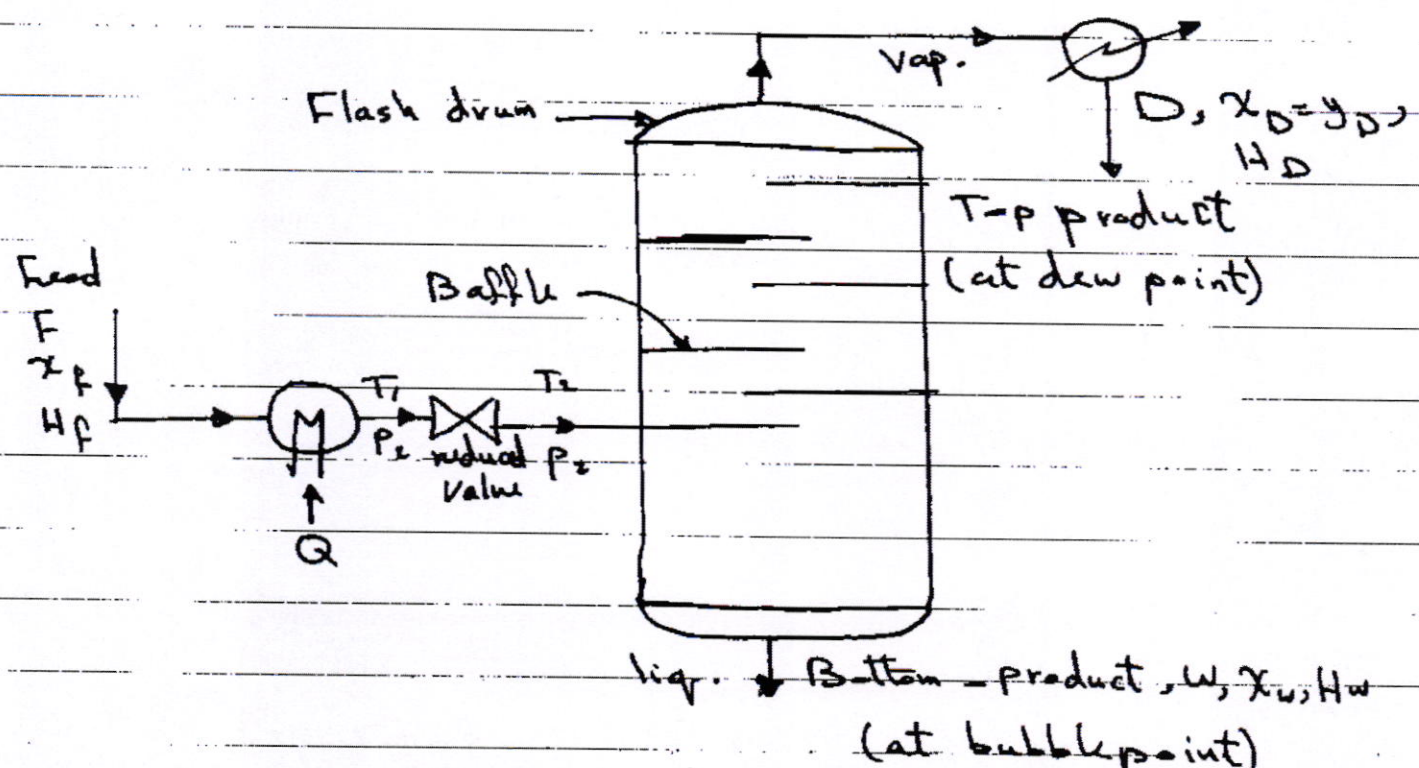 Vap.
Flash drum
D, x_D = y_D,
H_D
T-p product
(at dew point)
Feed
F
x_f
H_f
Baffle
T₁
T₂
P₂
reduced
value
P₂
Q
liq.
Bottom - product, W, x_w, H_w
(at bubble point)